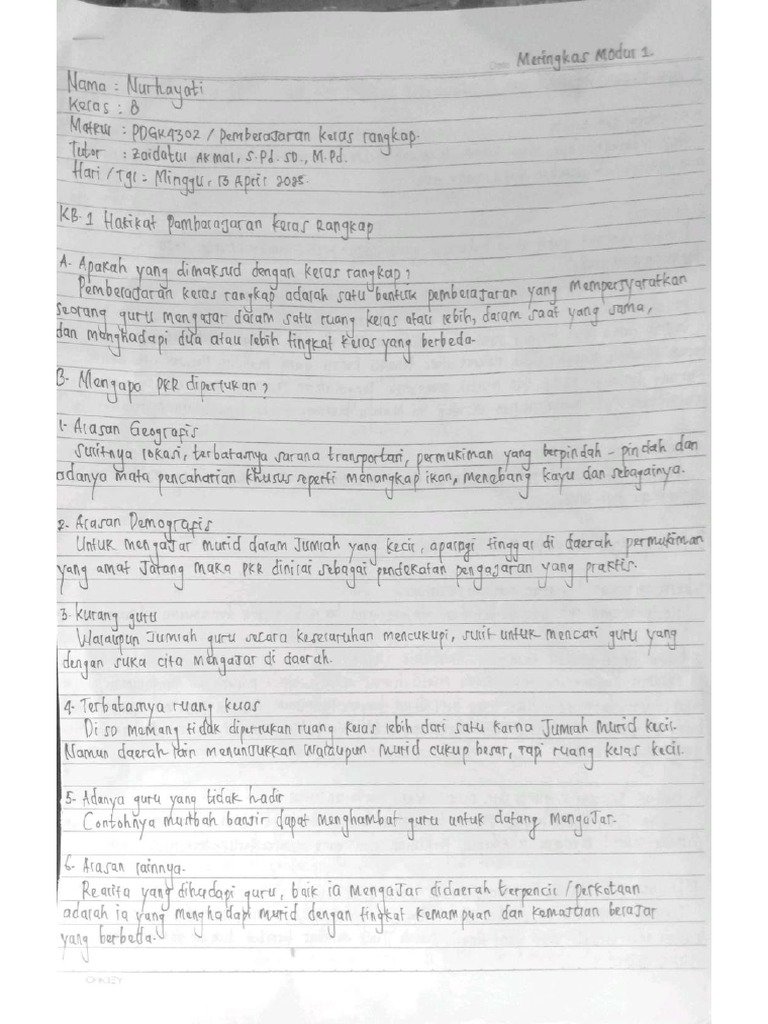 Meringkas Modul 1.
Nama : Nurhayati
Kelas : 8
Matkul : PDGK4302 / Pembelajaran kelas rangkap.
Tutor : Zaidatul Akmal, S.Pd. SD., M.Pd.
Hari / Tgl = Minggu, 13 April 2025.
KB. 1 Hakikat Pembelajaran Kelas Rangkap
A. Apakah yang dimaksud dengan kelas rangkap?
Pembelajaran kelas rangkap adalah satu bentuk pembelajaran yang mempersyaratkan
seorang guru mengajar dalam satu ruang kelas atau lebih, dalam saat yang sama,
dan menghadapi dua atau lebih tingkat kelas yang berbeda.
B. Mengapa PKR diperlukan?
1. Alasan Geografis
Sulitnya lokasi, terbatasnya sarana transportasi, permukiman yang berpindah - pindah dan
adanya mata pencaharian khusus seperti menangkap ikan, menebang kayu dan sebagainya.
2. Alasan Demografis
Untuk mengajar murid dalam jumlah yang kecil, apalagi tinggal di daerah permukiman
yang amat jarang maka PKR dinilai sebagai pendekatan pengajaran yang praktis.
3. Kurang guru
Walaupun jumlah guru secara keseluruhan mencukupi, sulit untuk mencari guru yang
dengan suka cita mengajar di daerah.
4. Terbatasnya ruang kelas
Di SD memang tidak diperlukan ruang kelas lebih dari satu karna jumlah murid kecil.
Namun daerah lain menunjukkan walaupun murid cukup besar, tapi ruang kelas kecil.
5. Adanya guru yang tidak hadir
Contohnya musibah banjir dapat menghambat guru untuk datang mengajar.
6. Alasan lainnya.
Realita yang dihadapi guru, baik ia mengajar didaerah terpencil / perkotaan
adalah ia yang menghadapi murid dengan tingkat kemampuan dan kemajuan belajar
yang berbeda.